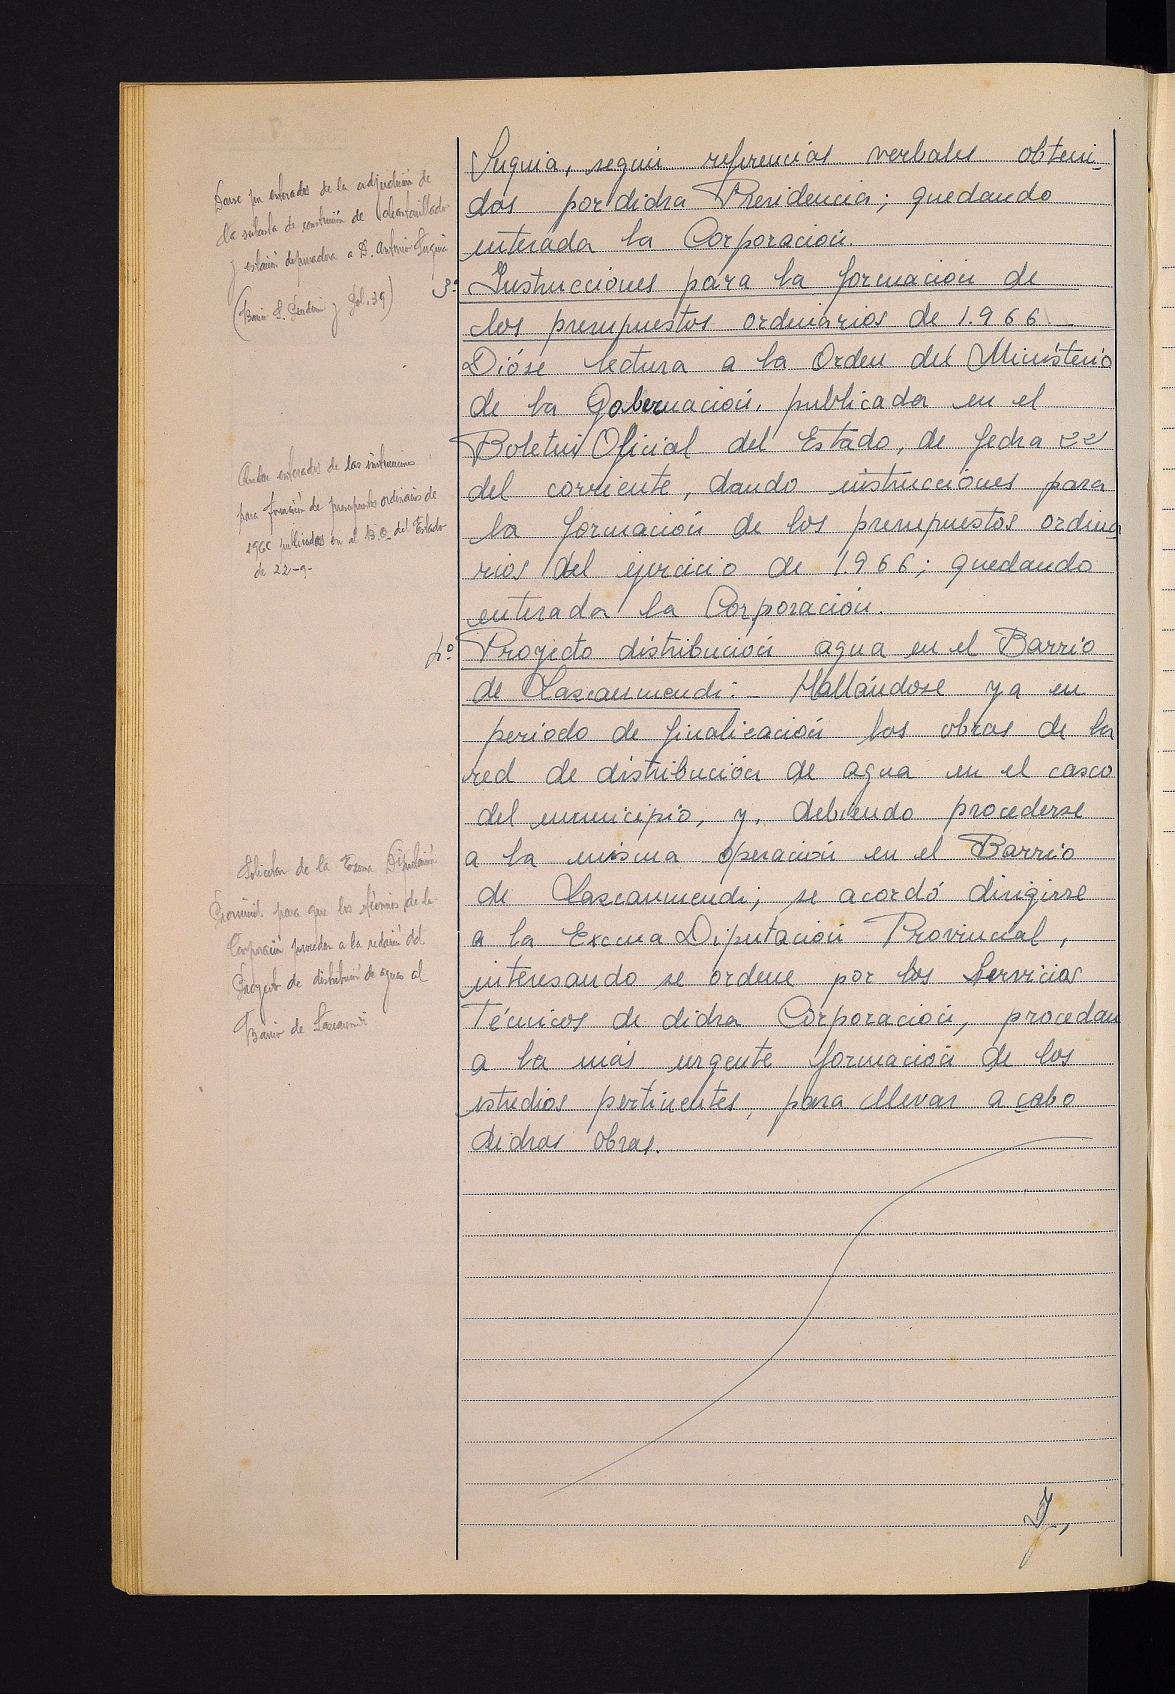 Darse por enterados de la adjudición de
la subasta de construción de alcantarillado
y estación depuradora a D. Antonio Suquia
(Barrio S. y fol. 39)
Suquia, según referencias verbales obteni-
das por dicha Presidencia; quedando
enterada la Corporación.
3º Instrucciones para la formación de
los presupuestos ordinarios de 1.966
Dióse lectura a la Orden del Ministerio
de la Gobernación, publicada en el
Boletin Oficial del Estado, de fecha 22
del corriente, dando instrucciones para
la formación de los presupuestos ordina
rios del ejercicio de 1.966; quedando
enterada la Corporación.
Quedar enterados de las instruciones
para formación de presupuestos ordinarios de
1966 publicadas en el B.O. del Estado
de 22-9-
4º Proyecto distribución agua en el Barrio
de Lascaumendi: - Hallándose ya en
periodo de finalización las obras de la
red de distribución de agua en el casco
del municipio, y, debiendo procederse
a la misma operación en el Barrio
de Lascaumendi; se acordó dirigirse
a la Excma Diputación Provincial,
interesando se ordene por los Servicios
Técnicos de dicha Corporación, procedan
a la más urgente formación de los
estudios pertinentes, para llevar a cabo
dichas obras.
Solicitar de la Excma Diputación
Provincial para que los técnicos de la
Corporación procedan a la redación del
Proyecto de distribución de aguas al
Barrio de